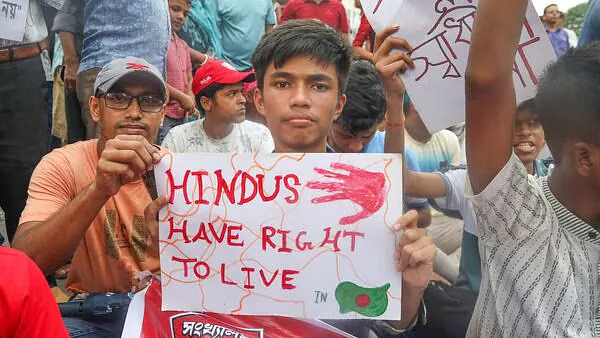 নয়"
HINDUS
HAVE RIGHT
TO LIVE
IN
সংখ্যালঘু